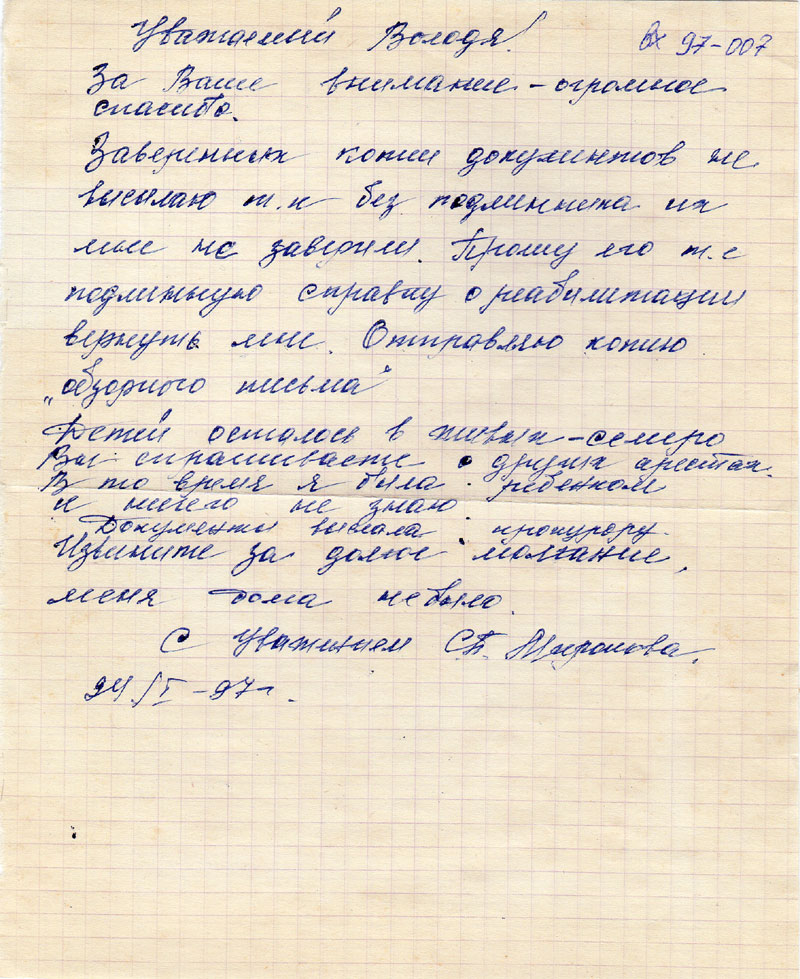 Уважаемый Володя!
Вх 97-007
За Ваше внимание - огромное
спасибо.
Заверенных копий документов не
высылаю т.к без подлинника их
мне не заверили. Прошу его т.е
подлинную справку о реабилитации
вернуть мне. Отправляю копию
„обзорного письма"
Детей осталось в живых - семеро
Вы спрашиваете о других арестах.
В то время я была ребенком
и ничего не знаю
Документы выслала прокурору.
Извините за долгое молчание,
меня дома не было.
С уважением С.П. Миронова.
24/I - 97 г.